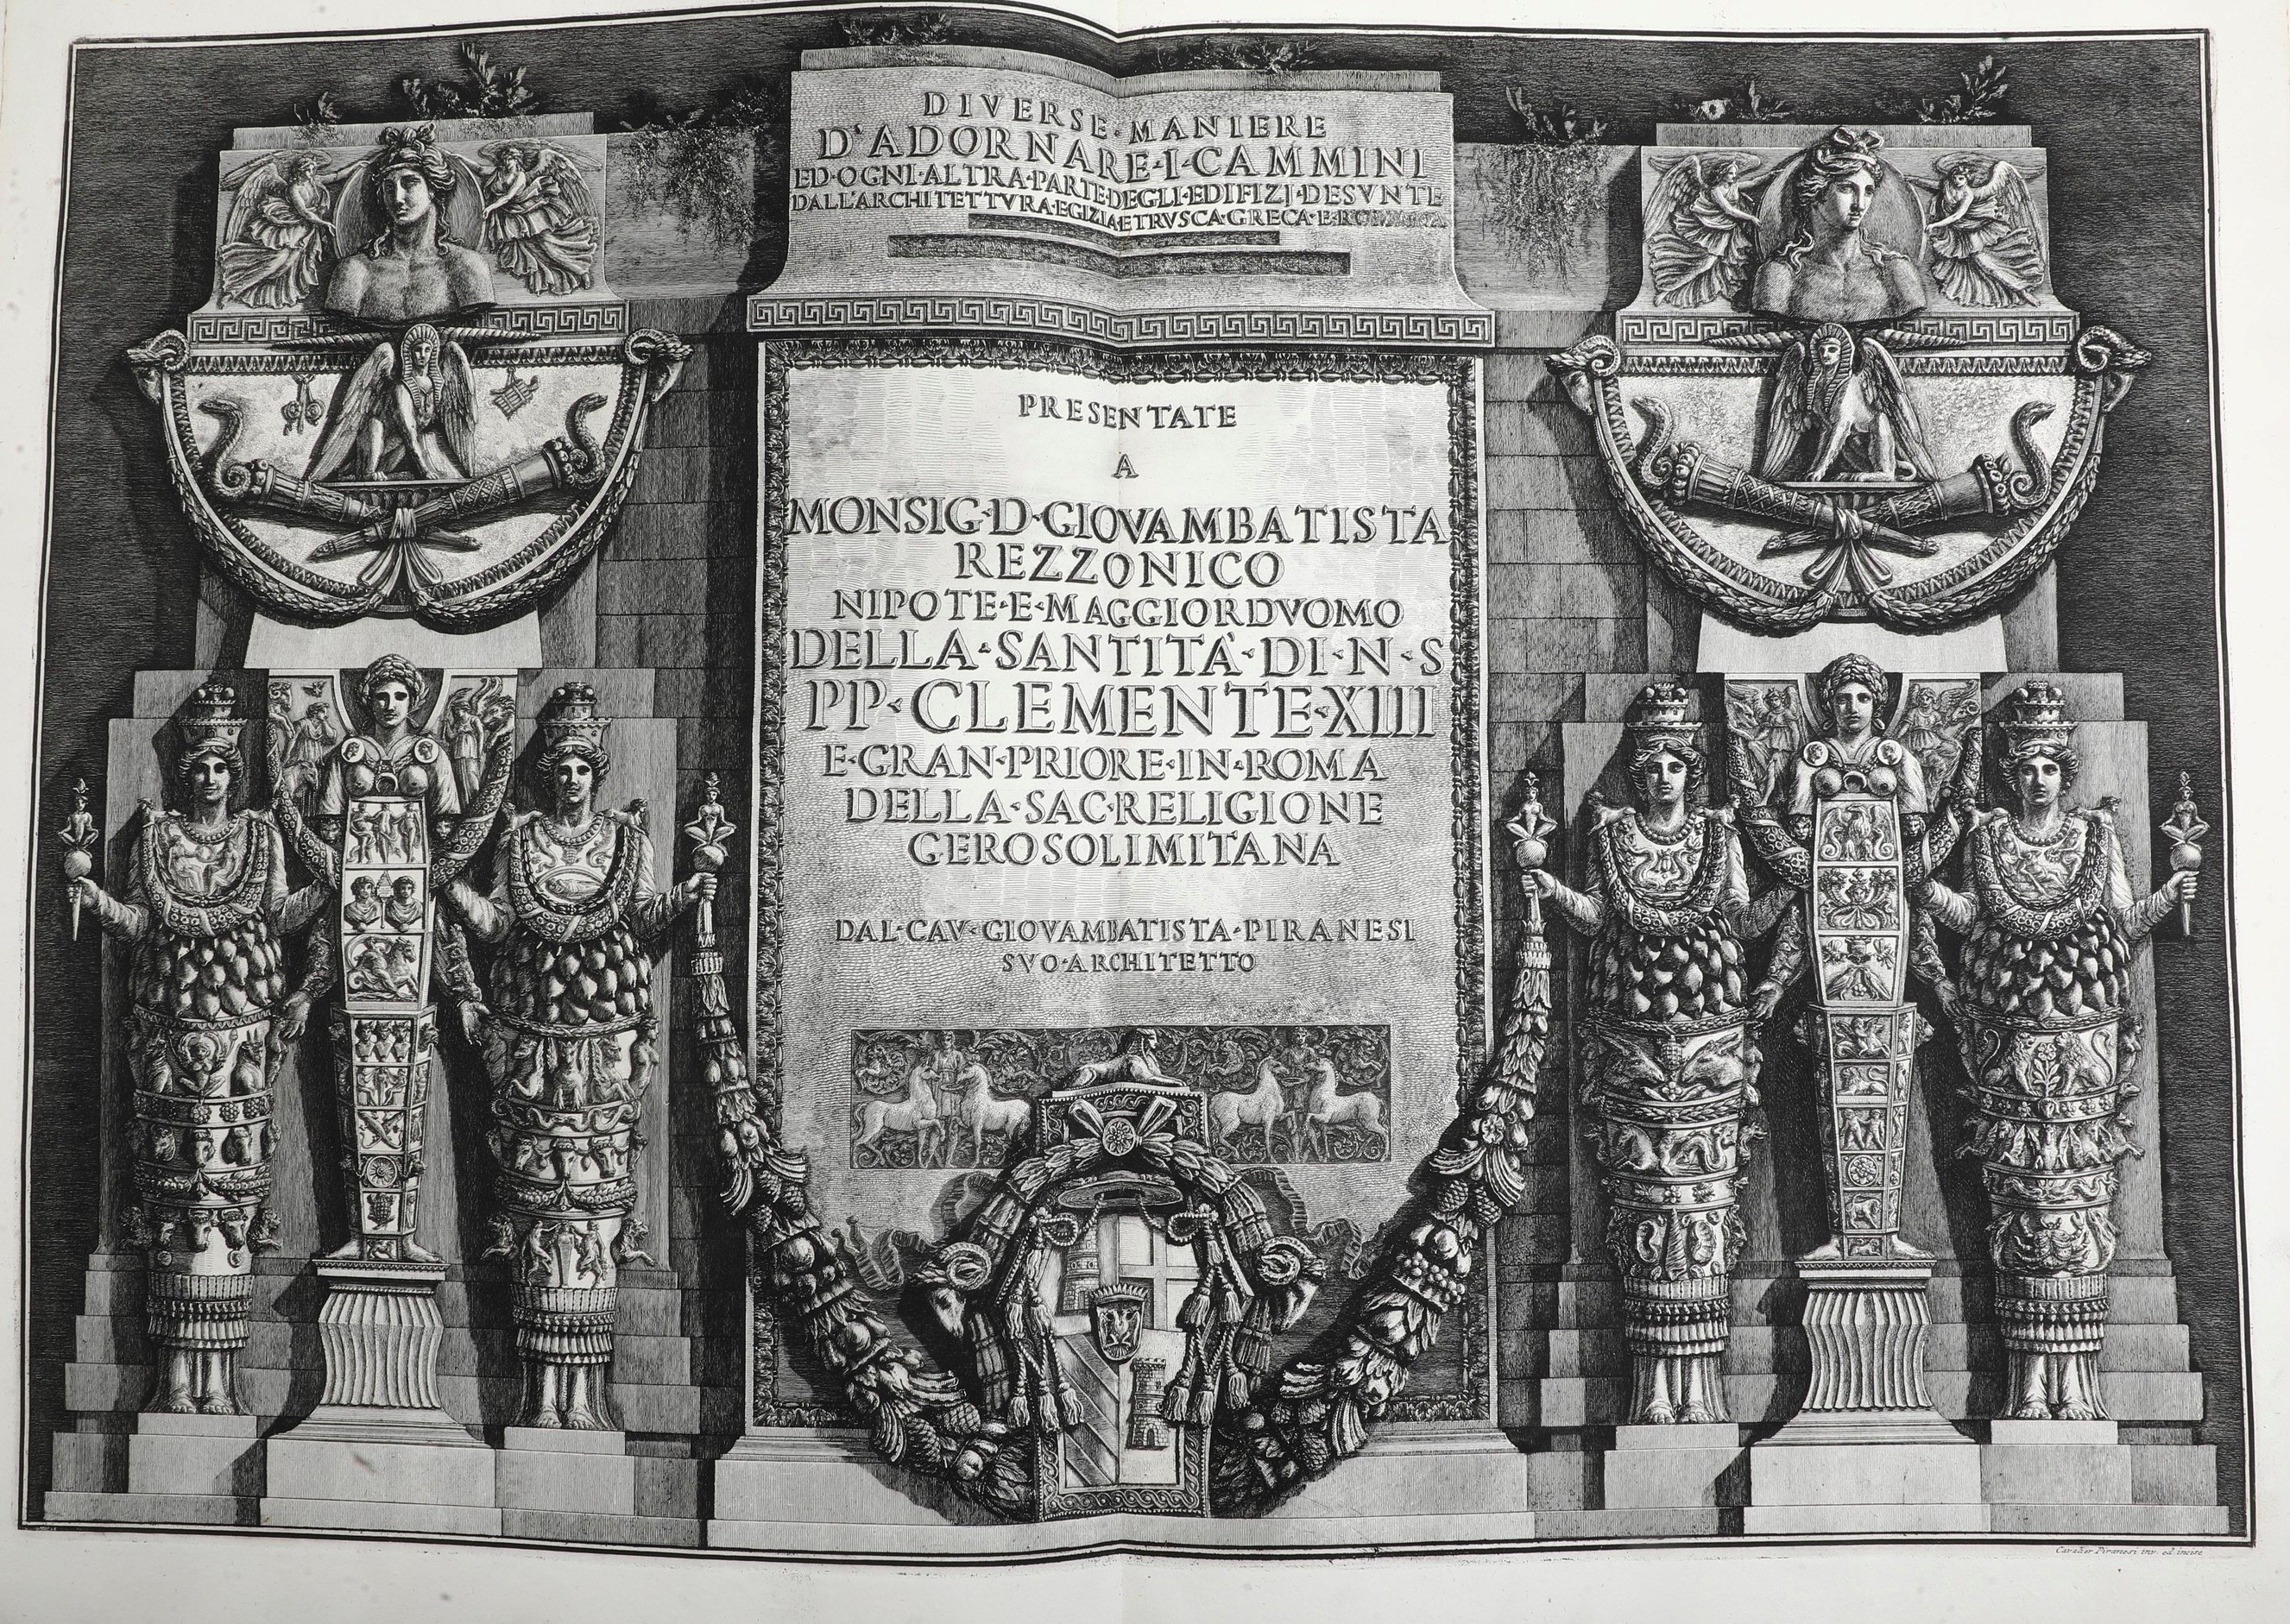 DIVERSE·MANIERE
D'ADORNARE·I·CAMMINI
ED·OGNI·ALTRA·PARTE·DEGLI·EDIFIZJ·DESVNTE
DALL'ARCHITETTVRA·EGIZIA·ETRVSCA·GRECA·E·ROMANA
PRESENTATE
A
MONSIG·D·GIOVAMBATISTA
REZZONICO
NIPOTE·E·MAGGIORDVOMO
DELLA·SANTITÀ·DI·N·S
PP·CLEMENTE·XIII
E·GRAN·PRIORE·IN·ROMA
DELLA·SAC·RELIGIONE
GEROSOLIMITANA
DAL·CAV·GIOVAMBATISTA·PIRANESI
SVO·ARCHITETTO
Cavalier Piranesi inv. ed incise